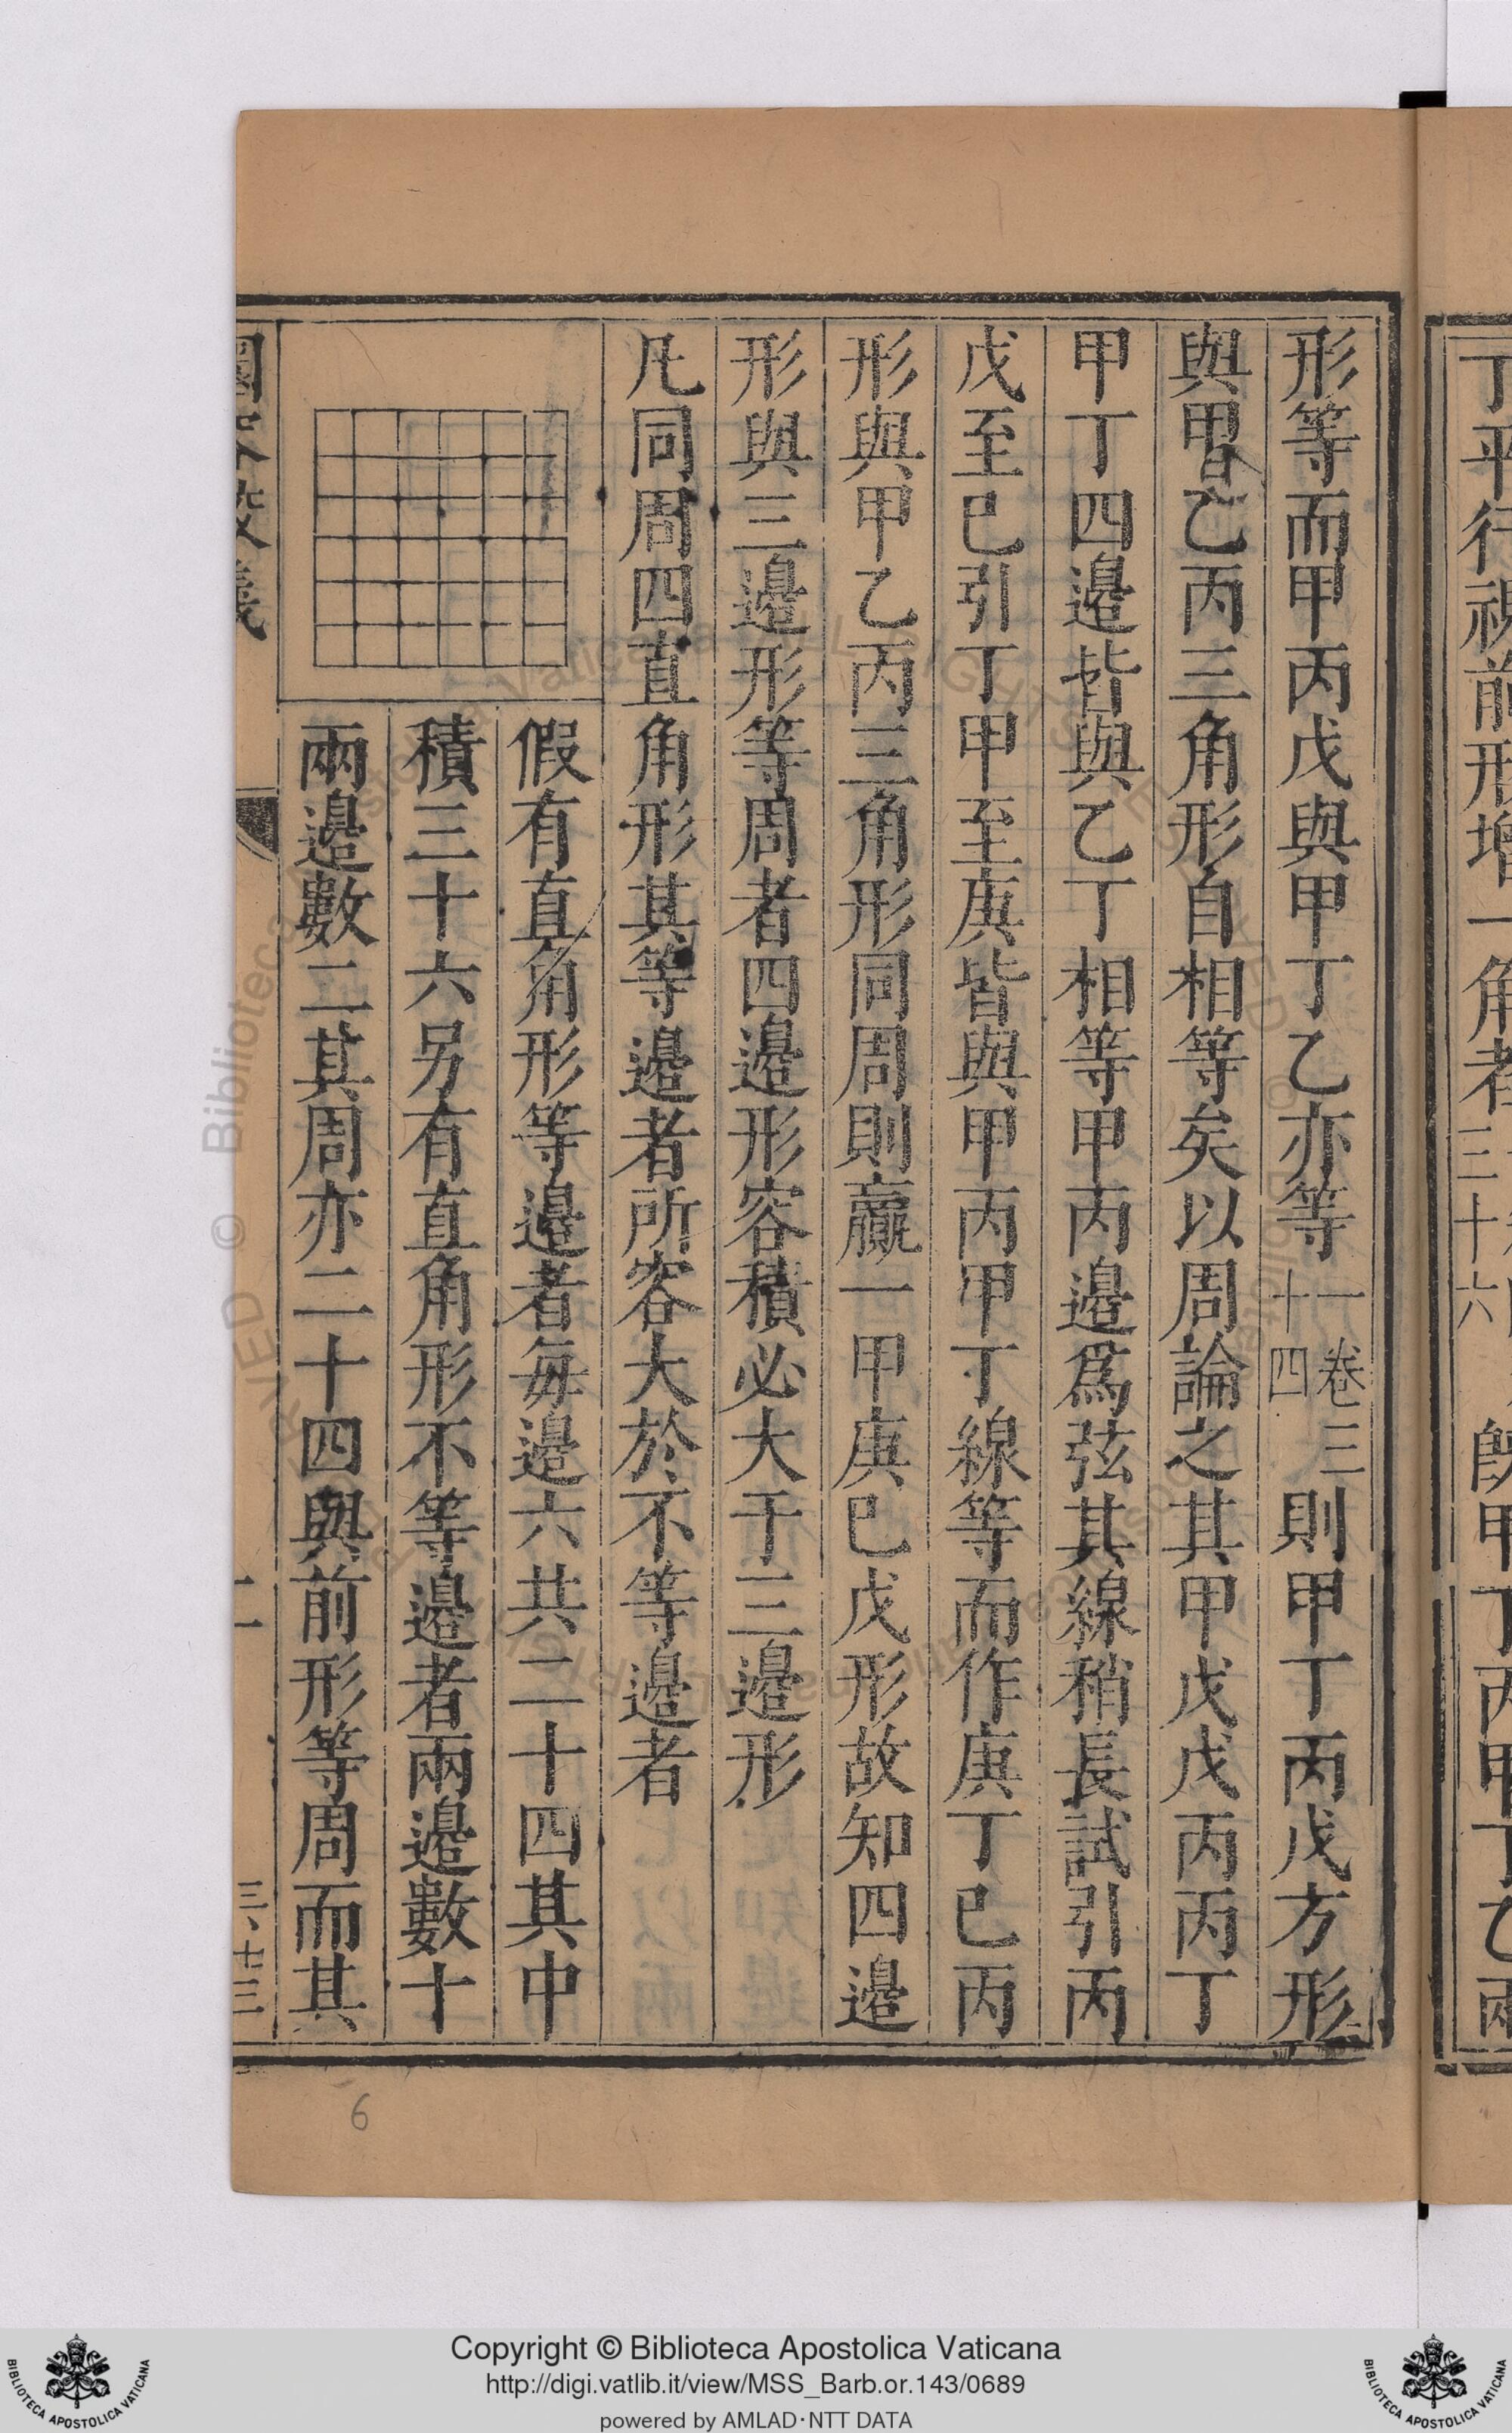 形等而甲丙戊與甲丁乙亦等一卷三十四則甲丁丙戊方形
與甲乙丙三角形自相等矣以周論之其甲戊戊丙丙丁
甲丁四邊皆與乙丁相等甲丙邊爲弦其線稍長試引丙
戊至巳引丁甲至庚皆與甲丙甲丁線等而作庚丁巳丙
形與甲乙丙三角形同周則贏一甲庚巳戊形故知四邊
形與三邊形等周者四邊形容積必大于三邊形
凡同周四直角形其等邊者所容大於不等邊者
假有直角形等邊者每邊六共二十四其中
積三十六另有直角形不等邊者兩邊數十
兩邊數二其周亦二十四與前形等周而其
6
Copyright © Biblioteca Apostolica Vaticana
http://digi.vatlib.it/view/MSS_Barb.or.143/0689
powered by AMLAD·NTT DATA
BIBLIOTECA APOSTOLICA VATICANA
BIBLIOTECA APOSTOLICA VATICANA